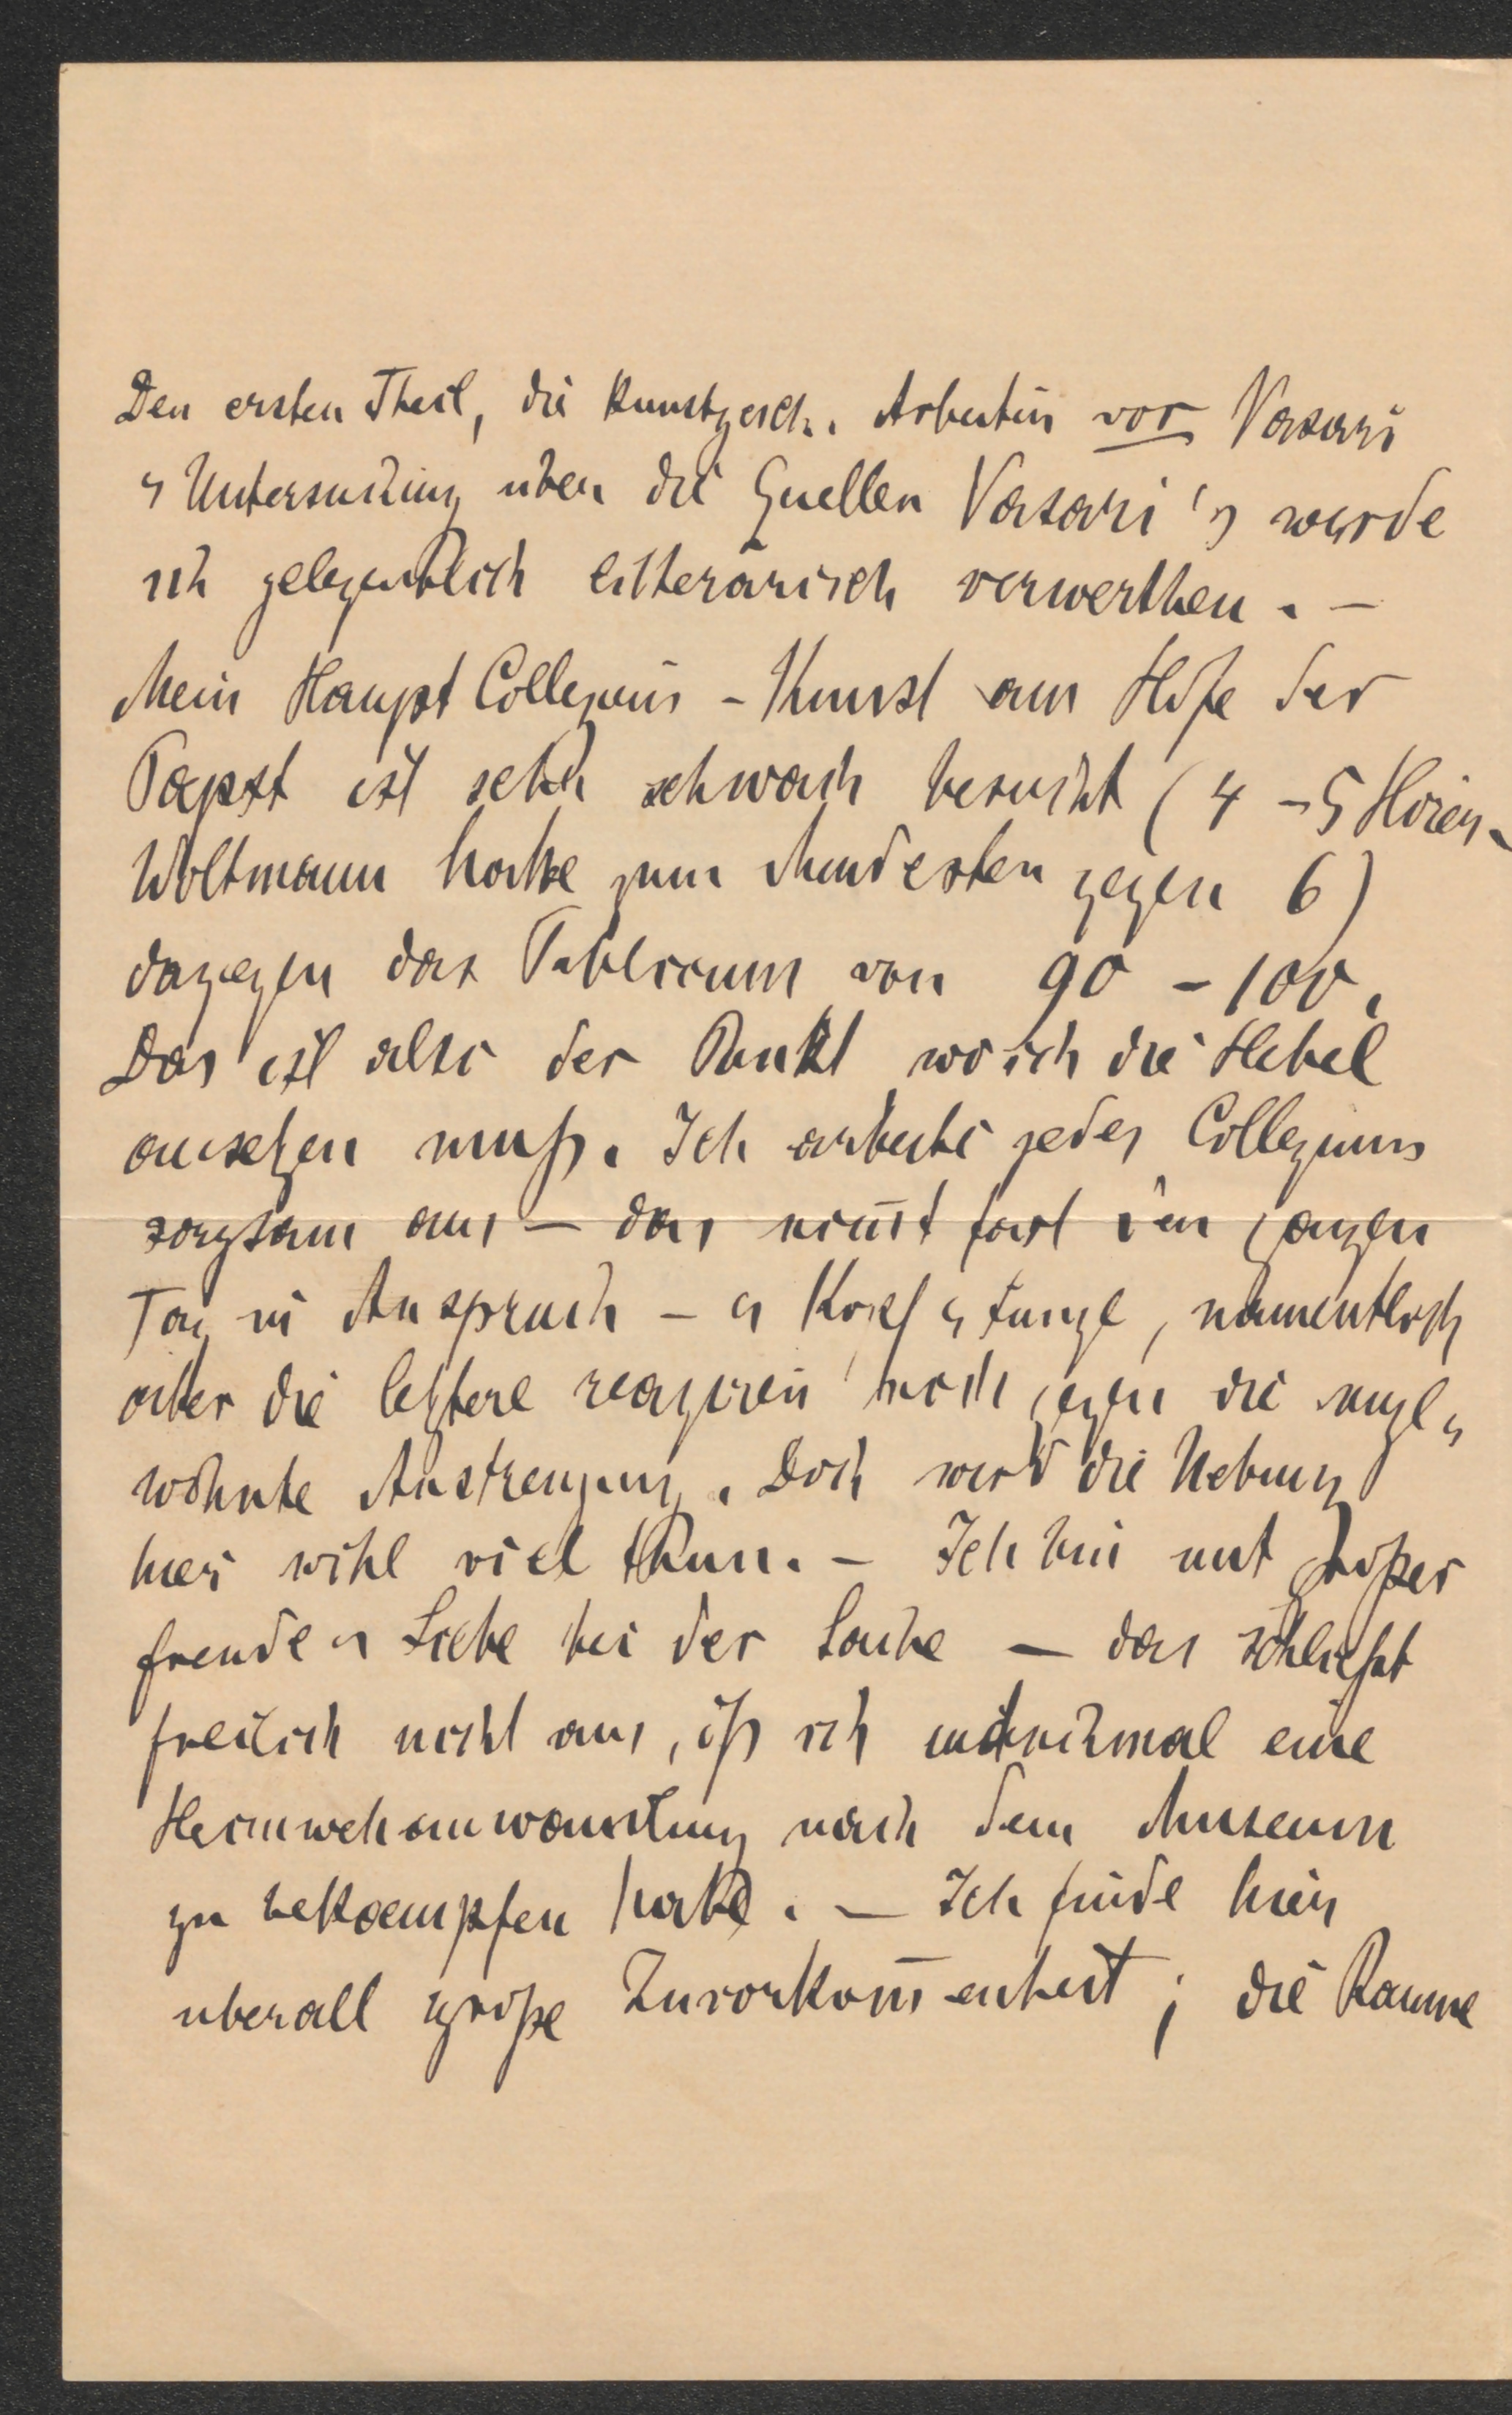 Den ersten Theil, die kunstgesch. Arbeiten vor Vasari
u Untersuchung über die Quellen Vasari's werde
ich gelegentlich litterärisch verwerthen. –
Mein Haupt Collegium – Kunst am Hofe der
Paepst ist sehr schwach besucht (4 – 5 Hörer,
Woltmann hatte zum Mindesten gegen 6)
dagegen das Publicum von 90 – 100.
Das ist also der Punkt wo ich die Hebel
ansetzen muß. Ich arbeite jedes Collegium
sorgsam aus – das nim̅t fast den ganzen
Tag in Anspruch – u Kopf u Lunge, namentlich
aber die letztere reagiren noch gegen die unge„
wohnte Anstrengung. Doch wird die Uebung
hier wohl viel thun. – Ich bin mit großer
Freude u Liebe bei der Sache – das schließt
freilich nicht aus, daß ich manchmal eine
Heimwehanwandlung nach dem Museum
zu bekaempfen habe. – Ich finde hier
überall große Zuvorkom̅enheit; die Räume